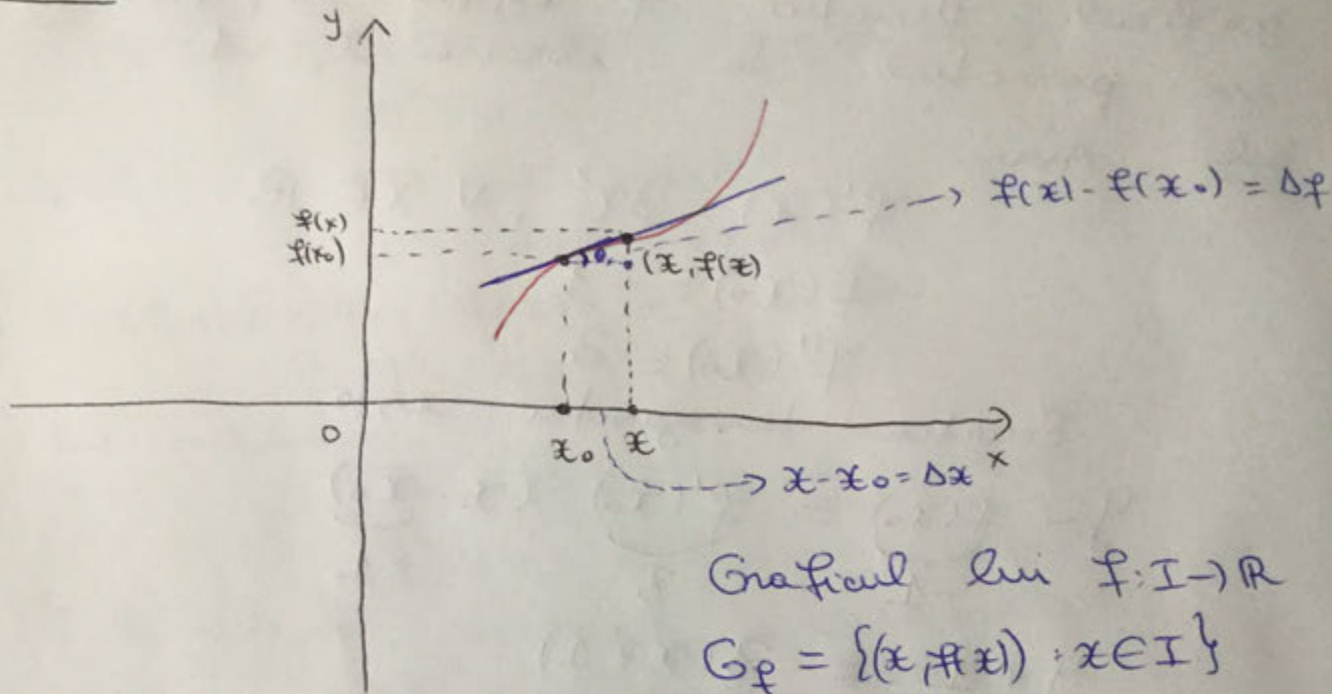 y
f(x) - f(x₀) = Δf
f(x)
f(x₀)
θ
(x, f(x)
0
x₀
x
x
x - x₀ = Δx
Graficul lui f: I → ℝ
G_f = {(x, f(x)) : x ∈ I}